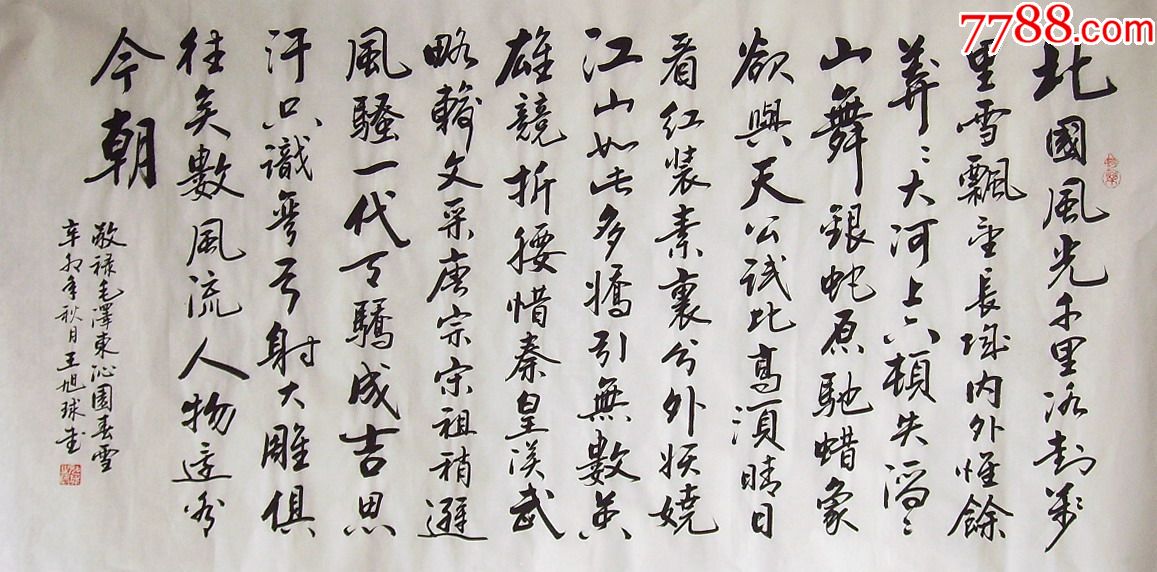 北國風光千里冰封萬
里雪飄望長城内外惟餘
莽〻大河上下頓失滔〻
山舞銀蛇原馳蜡象
欲與天公試比高須晴日
看紅裝素裹分外妖嬈
江山如此多嬌引無數英
雄競折腰惜秦皇漢武
略輸文采唐宗宋祖稍遜
風騷一代天驕成吉思
汗只識彎弓射大雕俱
往矣數風流人物還看
今朝
敬禄毛澤東沁園春雪
辛卯年秋月王旭球書
7788.com
中国收藏热线